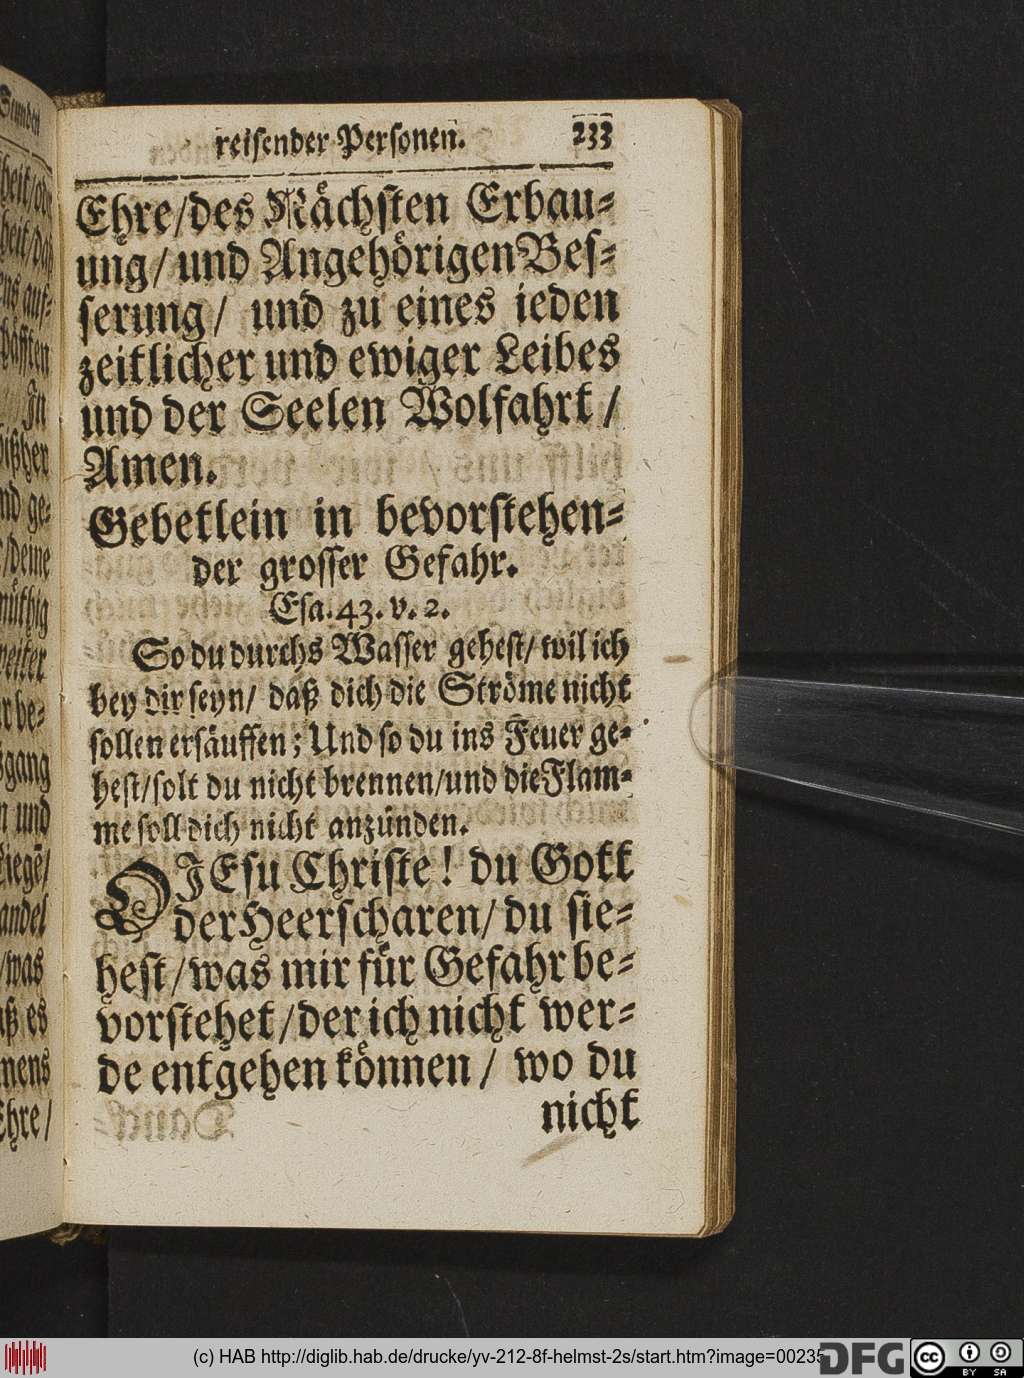 reisender Personen. 233
Ehre/des Nächsten Erbau-
ung/und Angehörigen Bes-
serung/ und zu eines ieden
zeitlicher und ewiger Leibes
und der Seelen Wolfahrt/
Amen.
Gebetlein in bevorstehen-
der grosser Gefahr.
Esa. 43. v. 2.
So du durchs Wasser gehest/wil ich
bey dir seyn/ daß dich die Ströme nicht
sollen ersäuffen; Und so du ins Feuer ge-
hest/solt du nicht brennen/und die Flam-
me soll dich nicht anzünden.
O JEsu Christe! du Gott
der Heerscharen/du sie-
hest/was mir für Gefahr be-
vorstehet/der ich nicht wer-
de entgehen können/ wo du
nicht
Stunden
heit/
In
bißher
nd ge-
/deine
müthig
r be-
gang
n und
andel
/was
ß es
mens
Ehre/
(c) HAB http://diglib.hab.de/drucke/yv-212-8f-helmst-2s/start.htm?image=00235
DFG
cc
BY SA